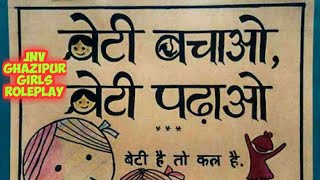 JNV
GHAZIPUR
GIRLS
ROLEPLAY
बेटी बचाओ,
बेटी पढ़ाओ
***
बेटी है तो कल है.